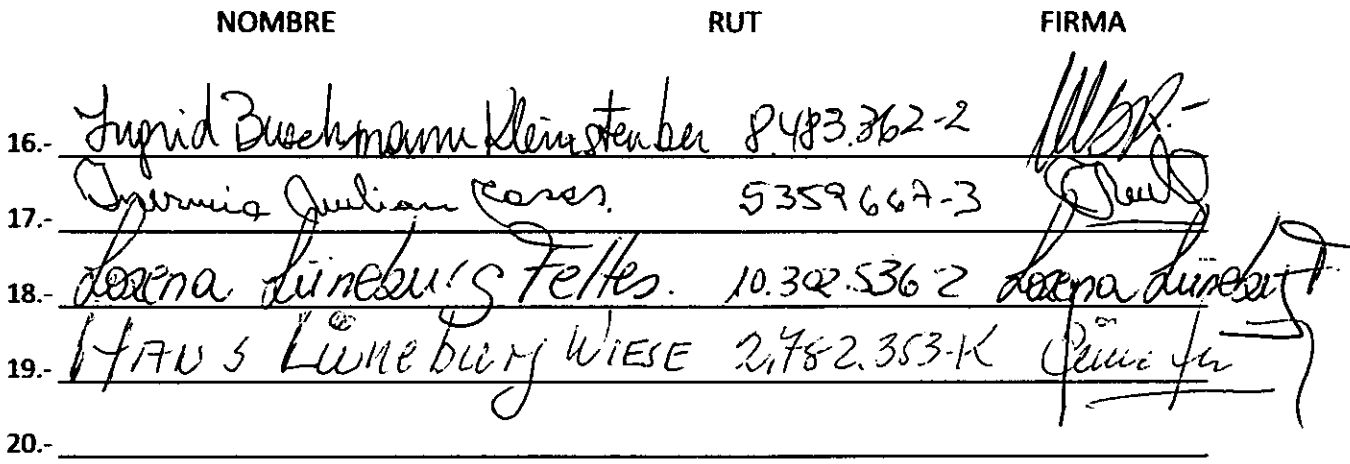 NOMBRE RUT FIRMA
16.- Ingrid Buschmann Kleinstenber 8.483.362-2
17.- 5359667-3
18.- Lorena Lüneburg Feltes. 10.302.536-2 Lorena Lüneburg
19.- HANS Lüneburg WIESE 2.782.353-K
20.-